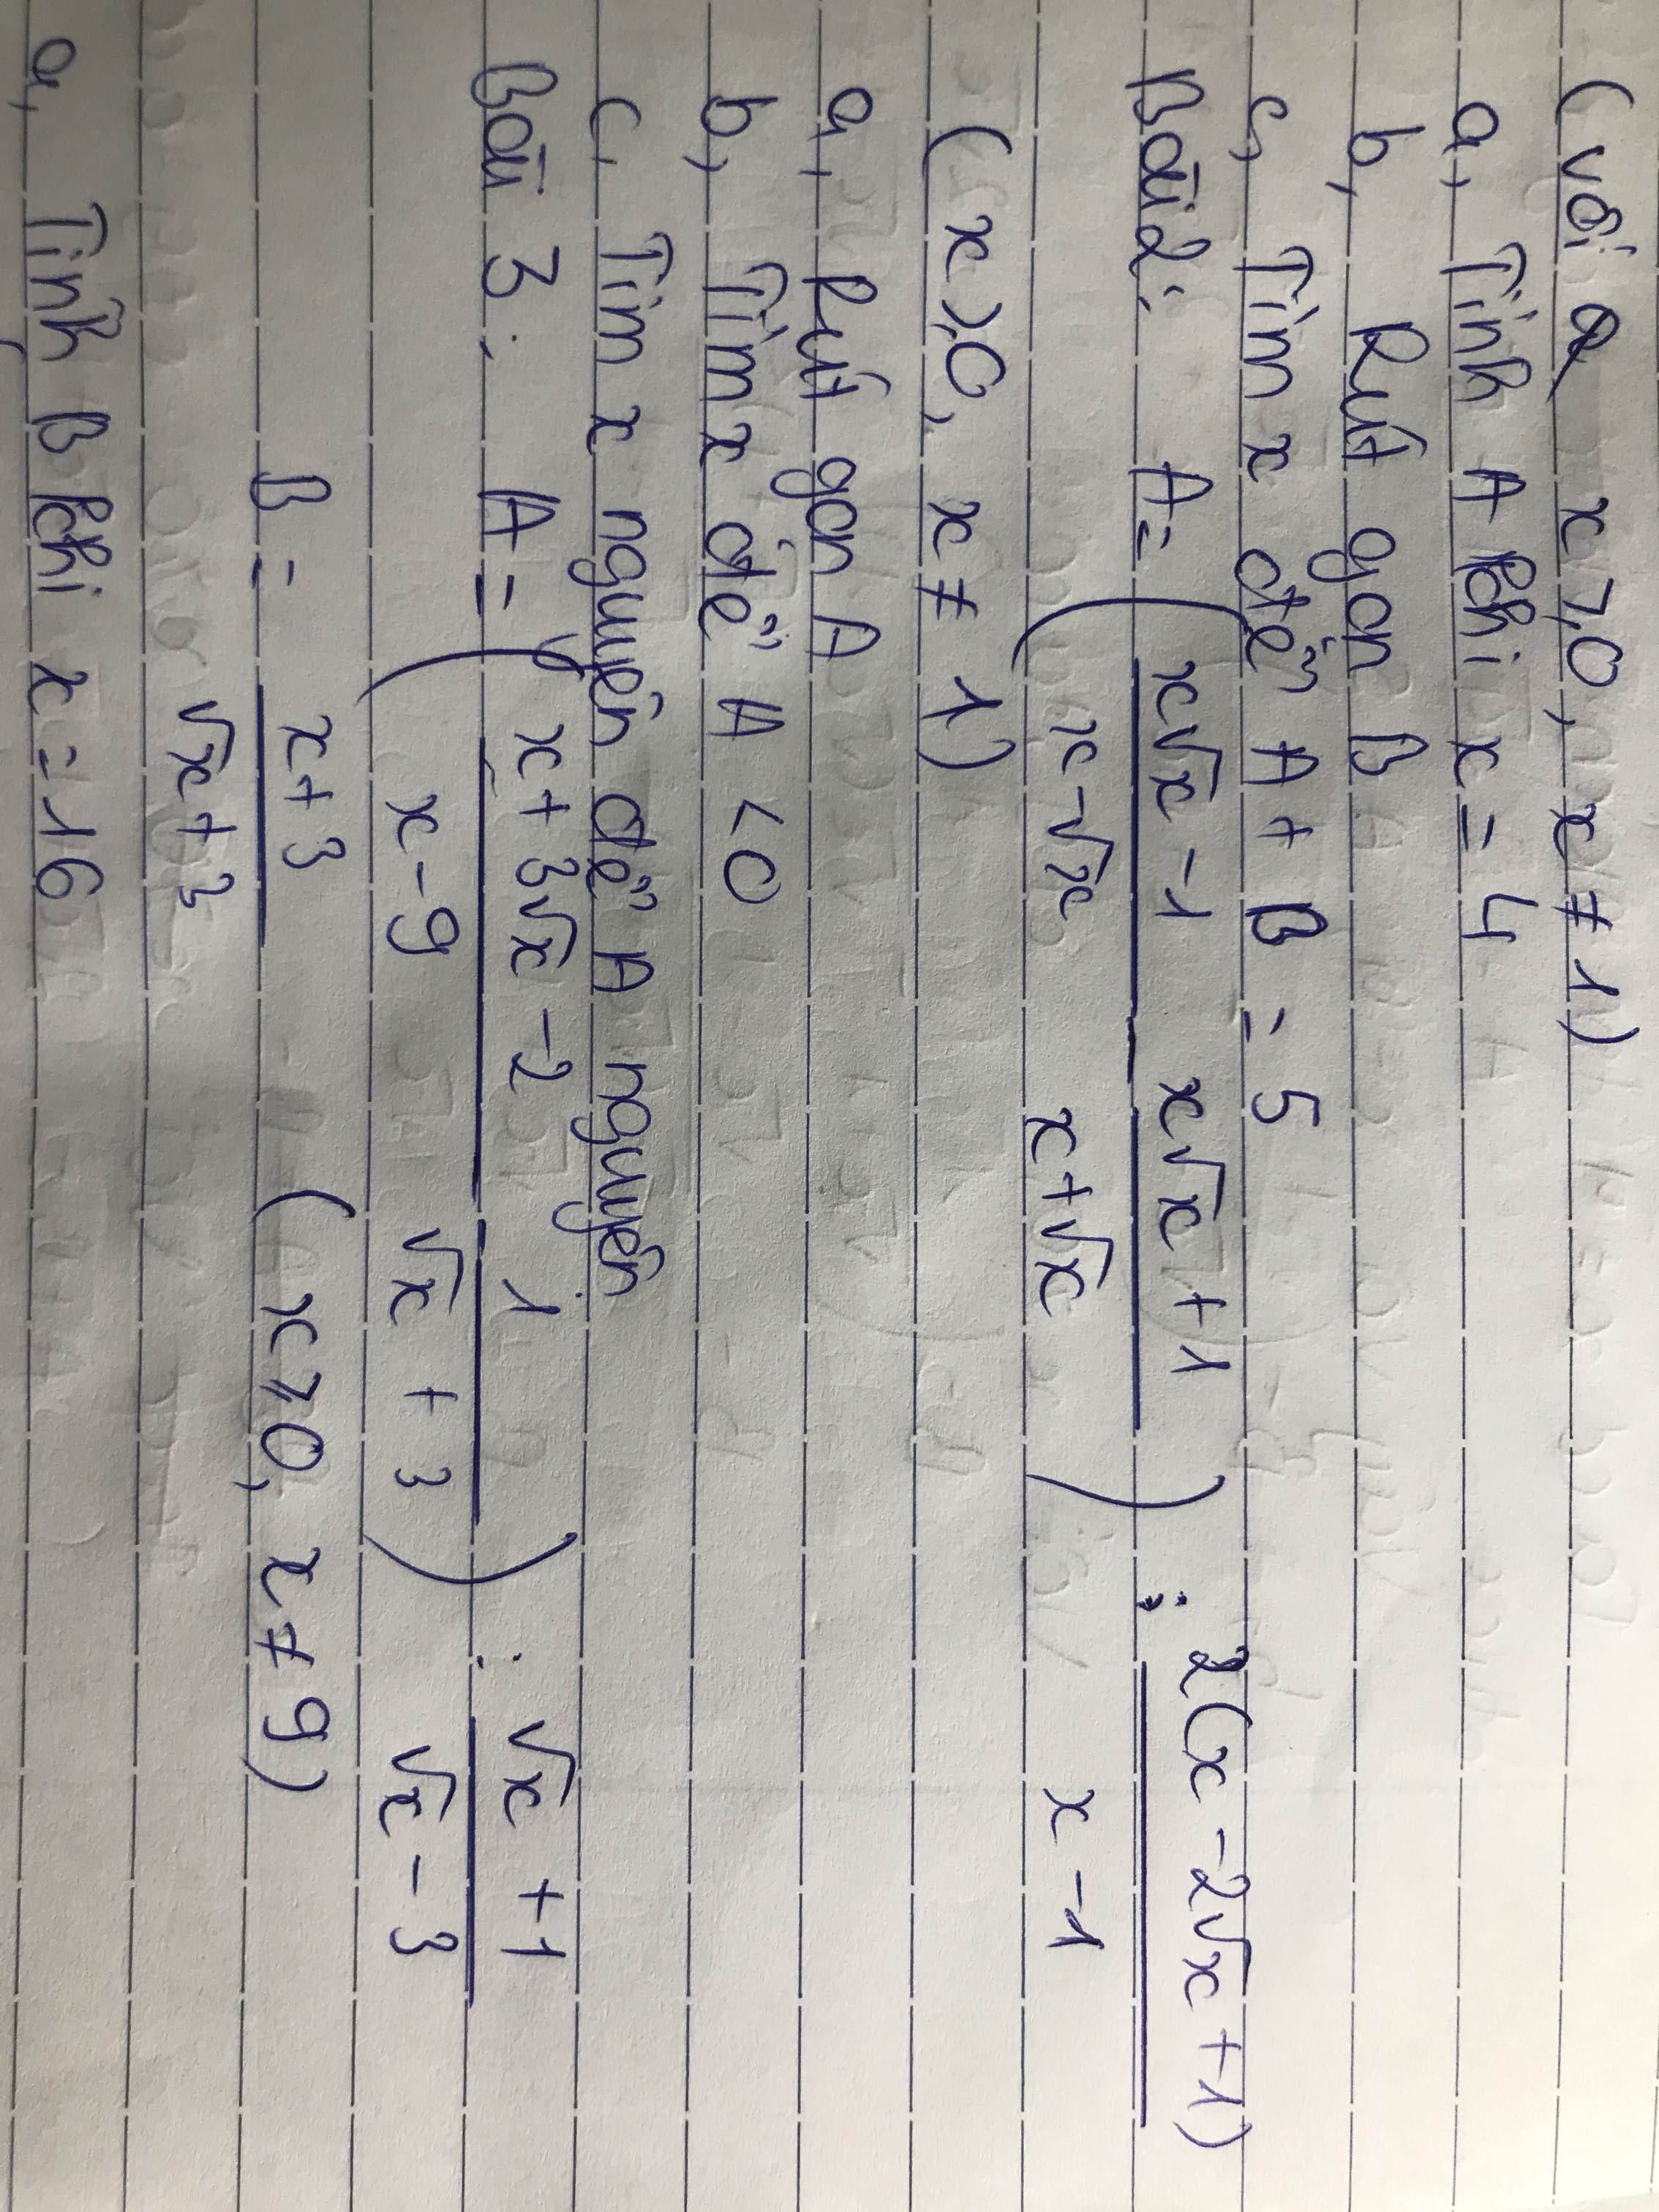 (với x ⩾ 0, x ≠ 1)
a, Tính A khi x = 4
b, Rút gọn B
c, Tìm x để A + B = 5
Bài 2: A = ( (x√x - 1)/(x - √x) - (x√x + 1)/(x + √x) ) : 2(x - 2√x + 1)/(x - 1)
(x ⩾ 0, x ≠ 1)
a, Rút gọn A
b, Tìm x để A < 0
c, Tìm x nguyên để A nguyên
Bài 3: A = ( (x + 3√x - 2)/(x - 9) - 1/(√x + 3) ) : (√x + 1)/(√x - 3)
B = (x + 3)/(√x + 3) (x ⩾ 0, x ≠ 9)
a, Tính B khi x = 16